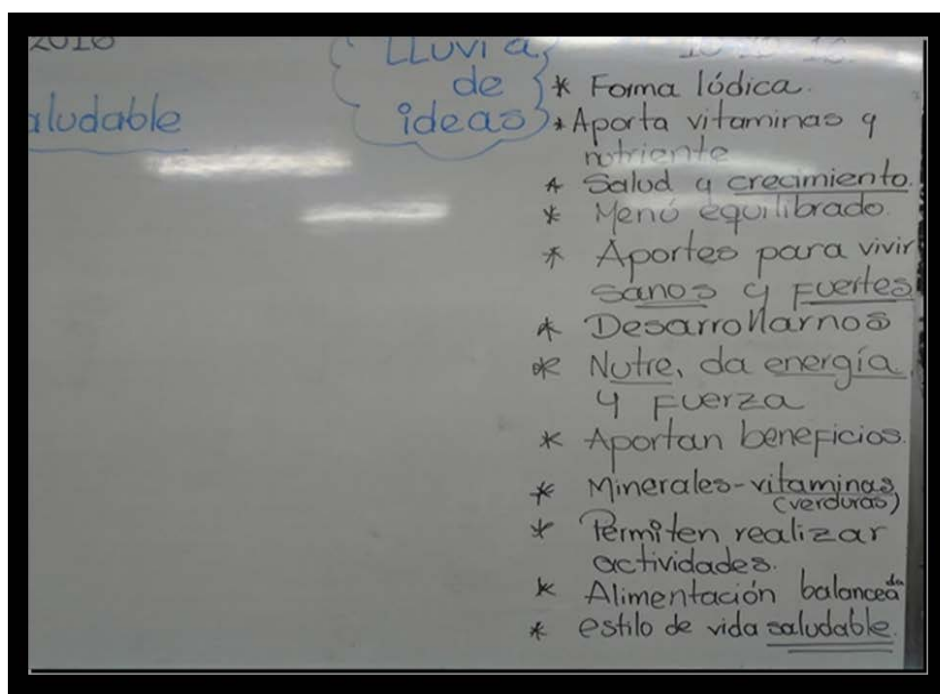 2016
aludable
LLUVIA
de
ideas
* Forma lúdica.
* Aporta vitaminas y
nutriente
* Salud y crecimiento.
* Menú equilibrado.
* Aportes para vivir
sanos y fuertes
* Desarrollarnos
* Nutre, da energía
y fuerza
* Aportan beneficios.
* Minerales-vitaminas
(verduras)
* Permiten realizar
actividades.
* Alimentación balanceada
* estilo de vida saludable.